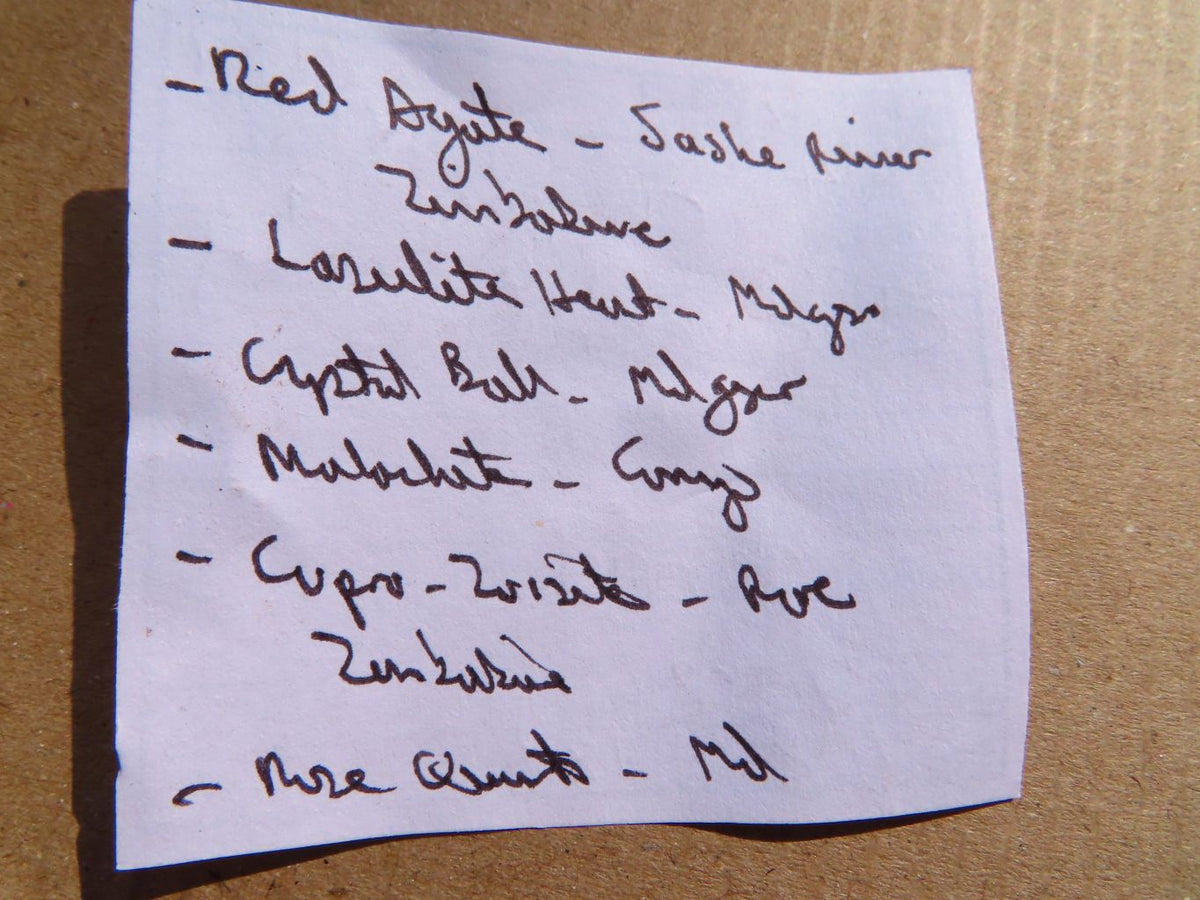 - Red Agate - Sashe River
Zimbabwe
- Lazulite Heart - Mdgsr
- Crystal Ball - Mdgsr
- Malachite - Congo
- Cupro-Zoisite -
Zimbabwe
- Rose Quartz - Md